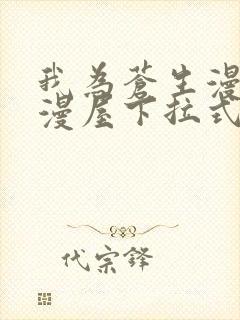 我为苍生漫
漫屋下拉式
代宗铎